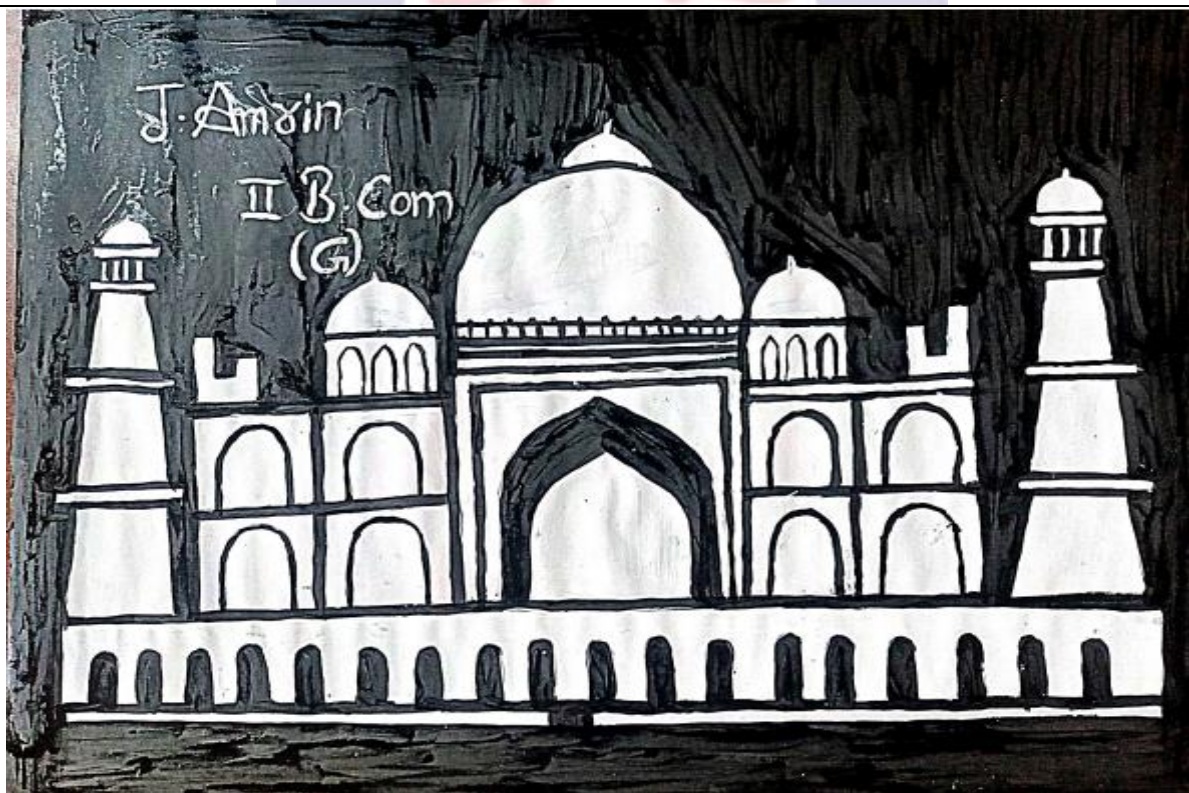 J. Amrin
II B.Com
(G)